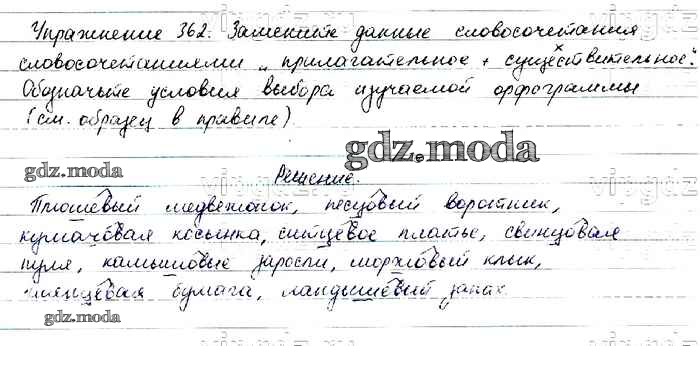 Упражнение 362. Замените данные словосочетания
словосочетаниями „прилагательное + существительное".
Обозначьте условия выбора изучаемой орфограммы
(см. образец в правиле).
gdz.moda
gdz.moda
Решение.
Плюшевый медвежонок, песцовый воротник,
кумачовая косынка, ситцевое платье, свинцовая
пуля, камышовые заросли, моржовый клык,
глянцевая бумага, ландышевый запах.
gdz.moda